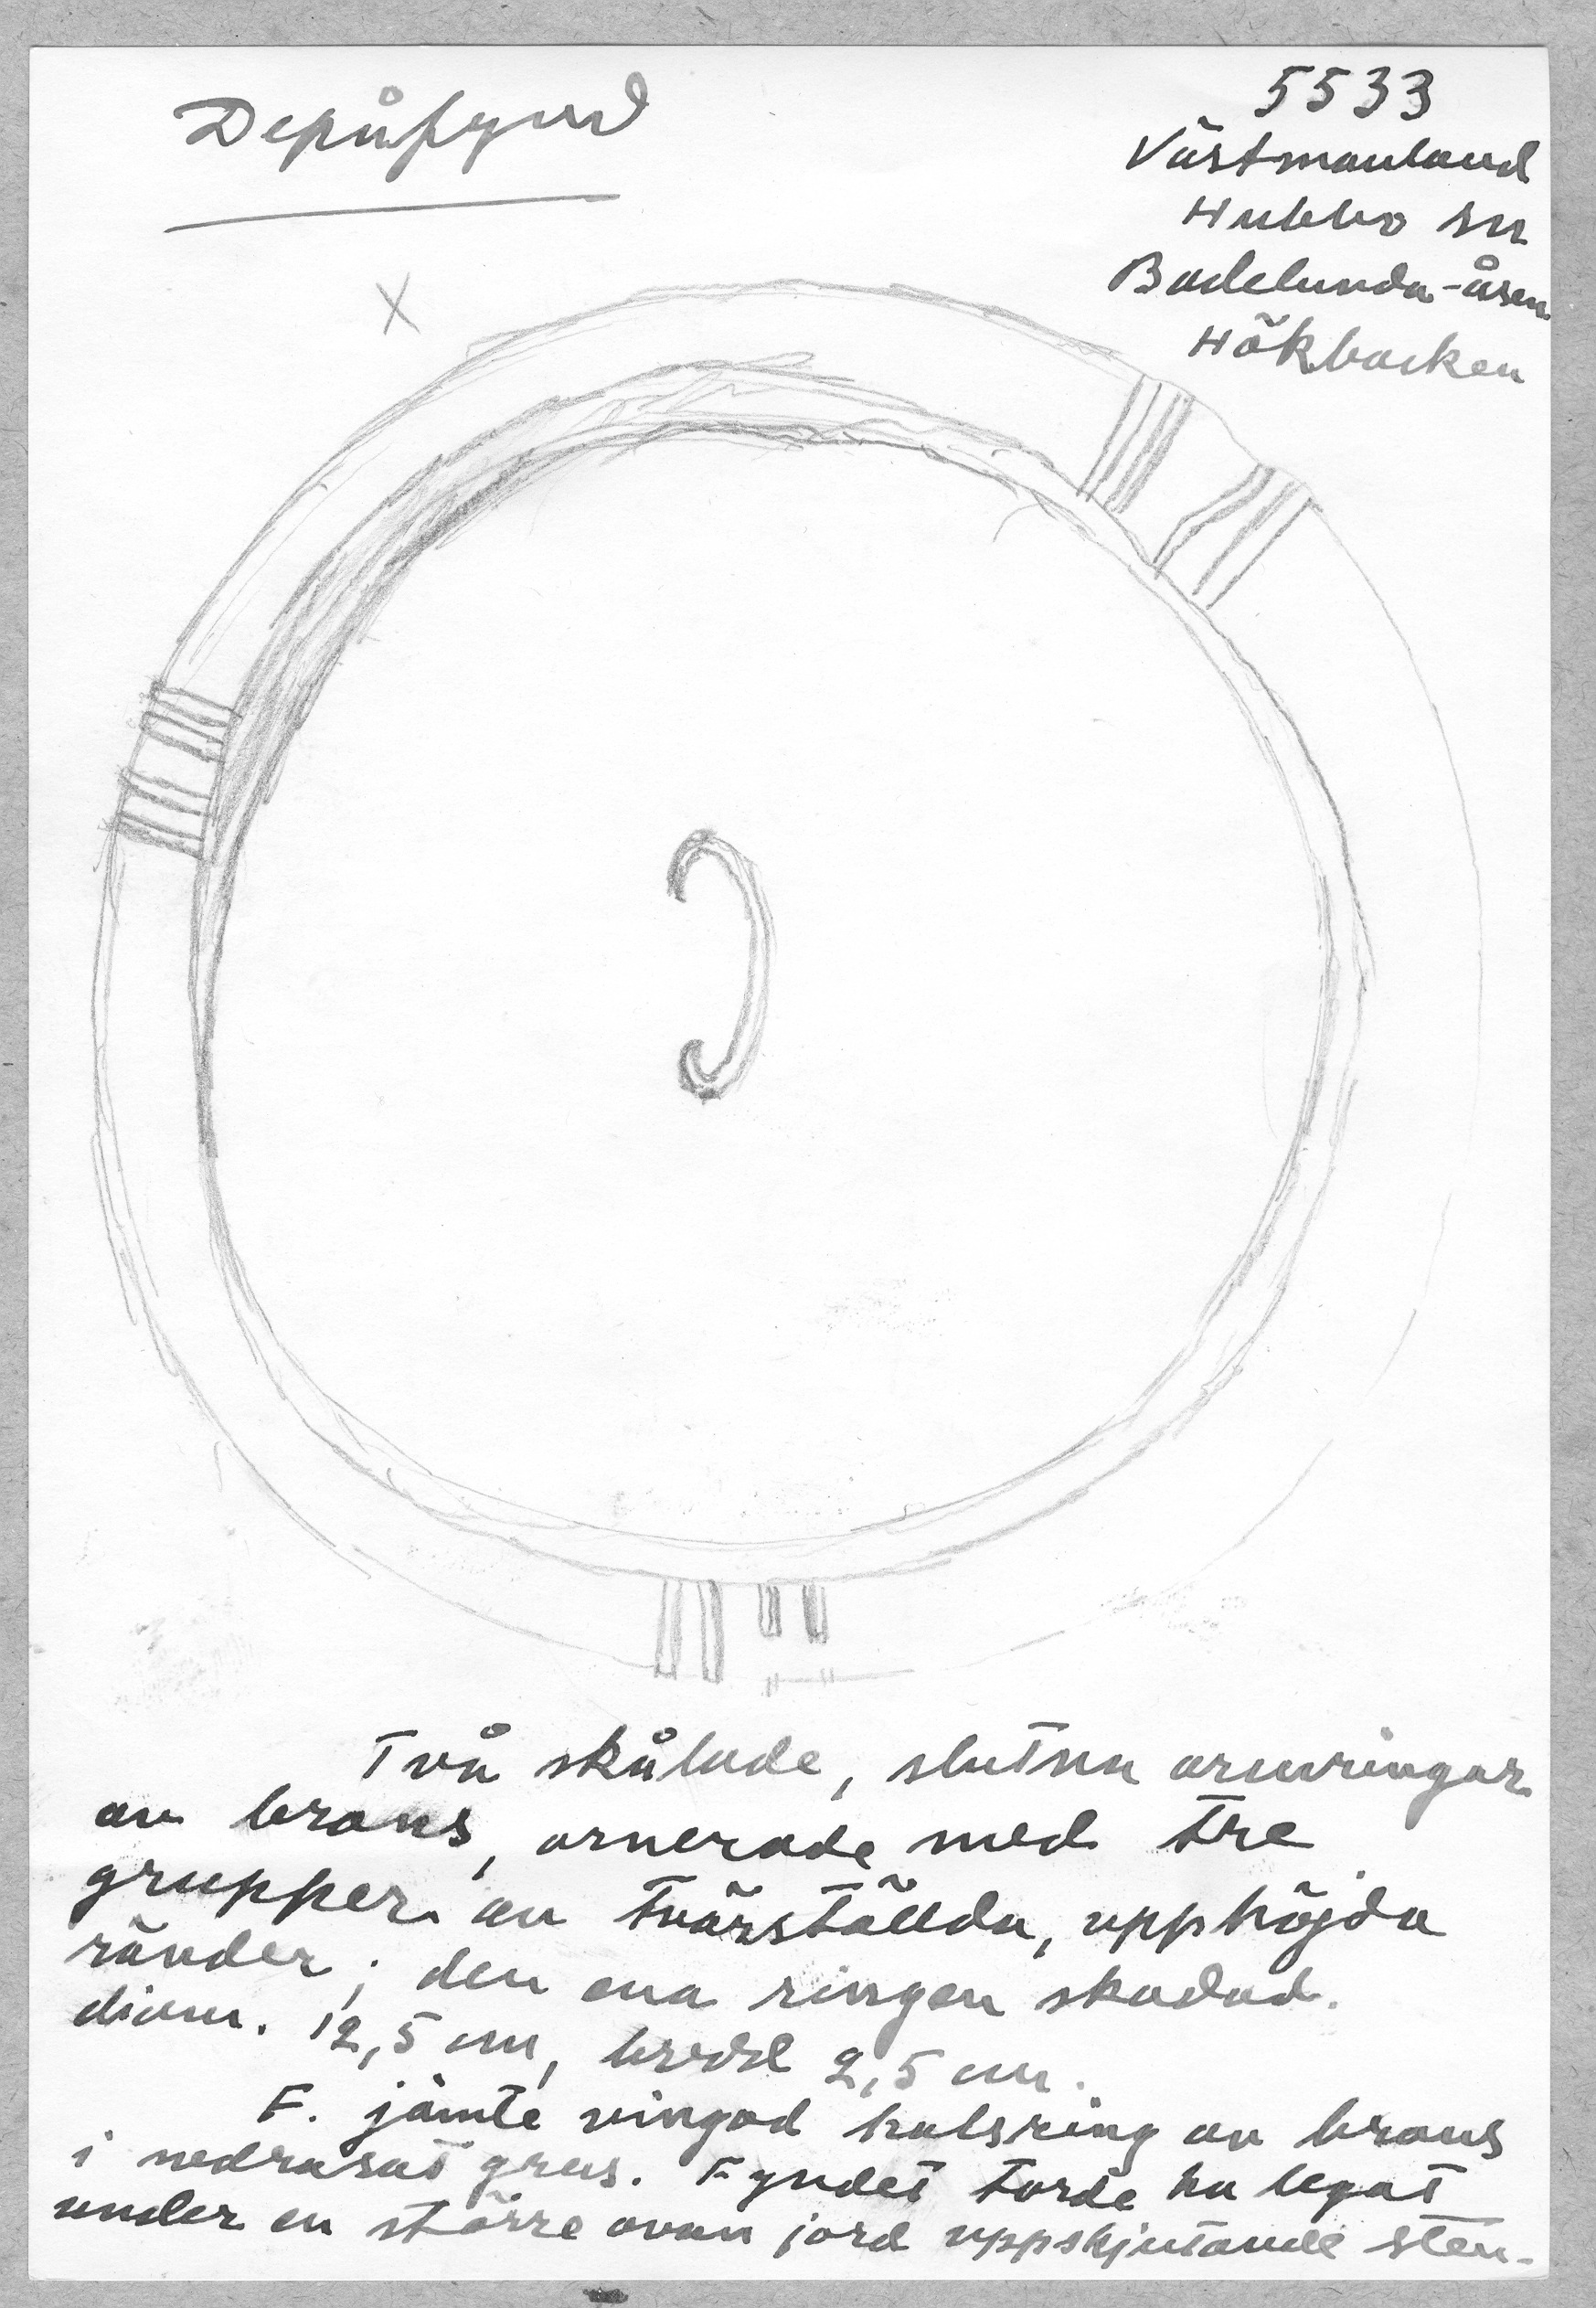 Depåfynd
5533
Västmanland
Hubbo sn
Badelunda-åsen
Hökbacken
X
Två skålade, slutna armringar
av brons, ornerade med tre
grupper av tvärställda, upphöjda
ränder; den ena ringen skadad.
diam. 12,5 cm, bredd 2,5 cm.
F. jämte vingad halsring av brons
i nedrasat grus. Fyndet torde ha legat
under en större ovan jord uppskjutande sten.